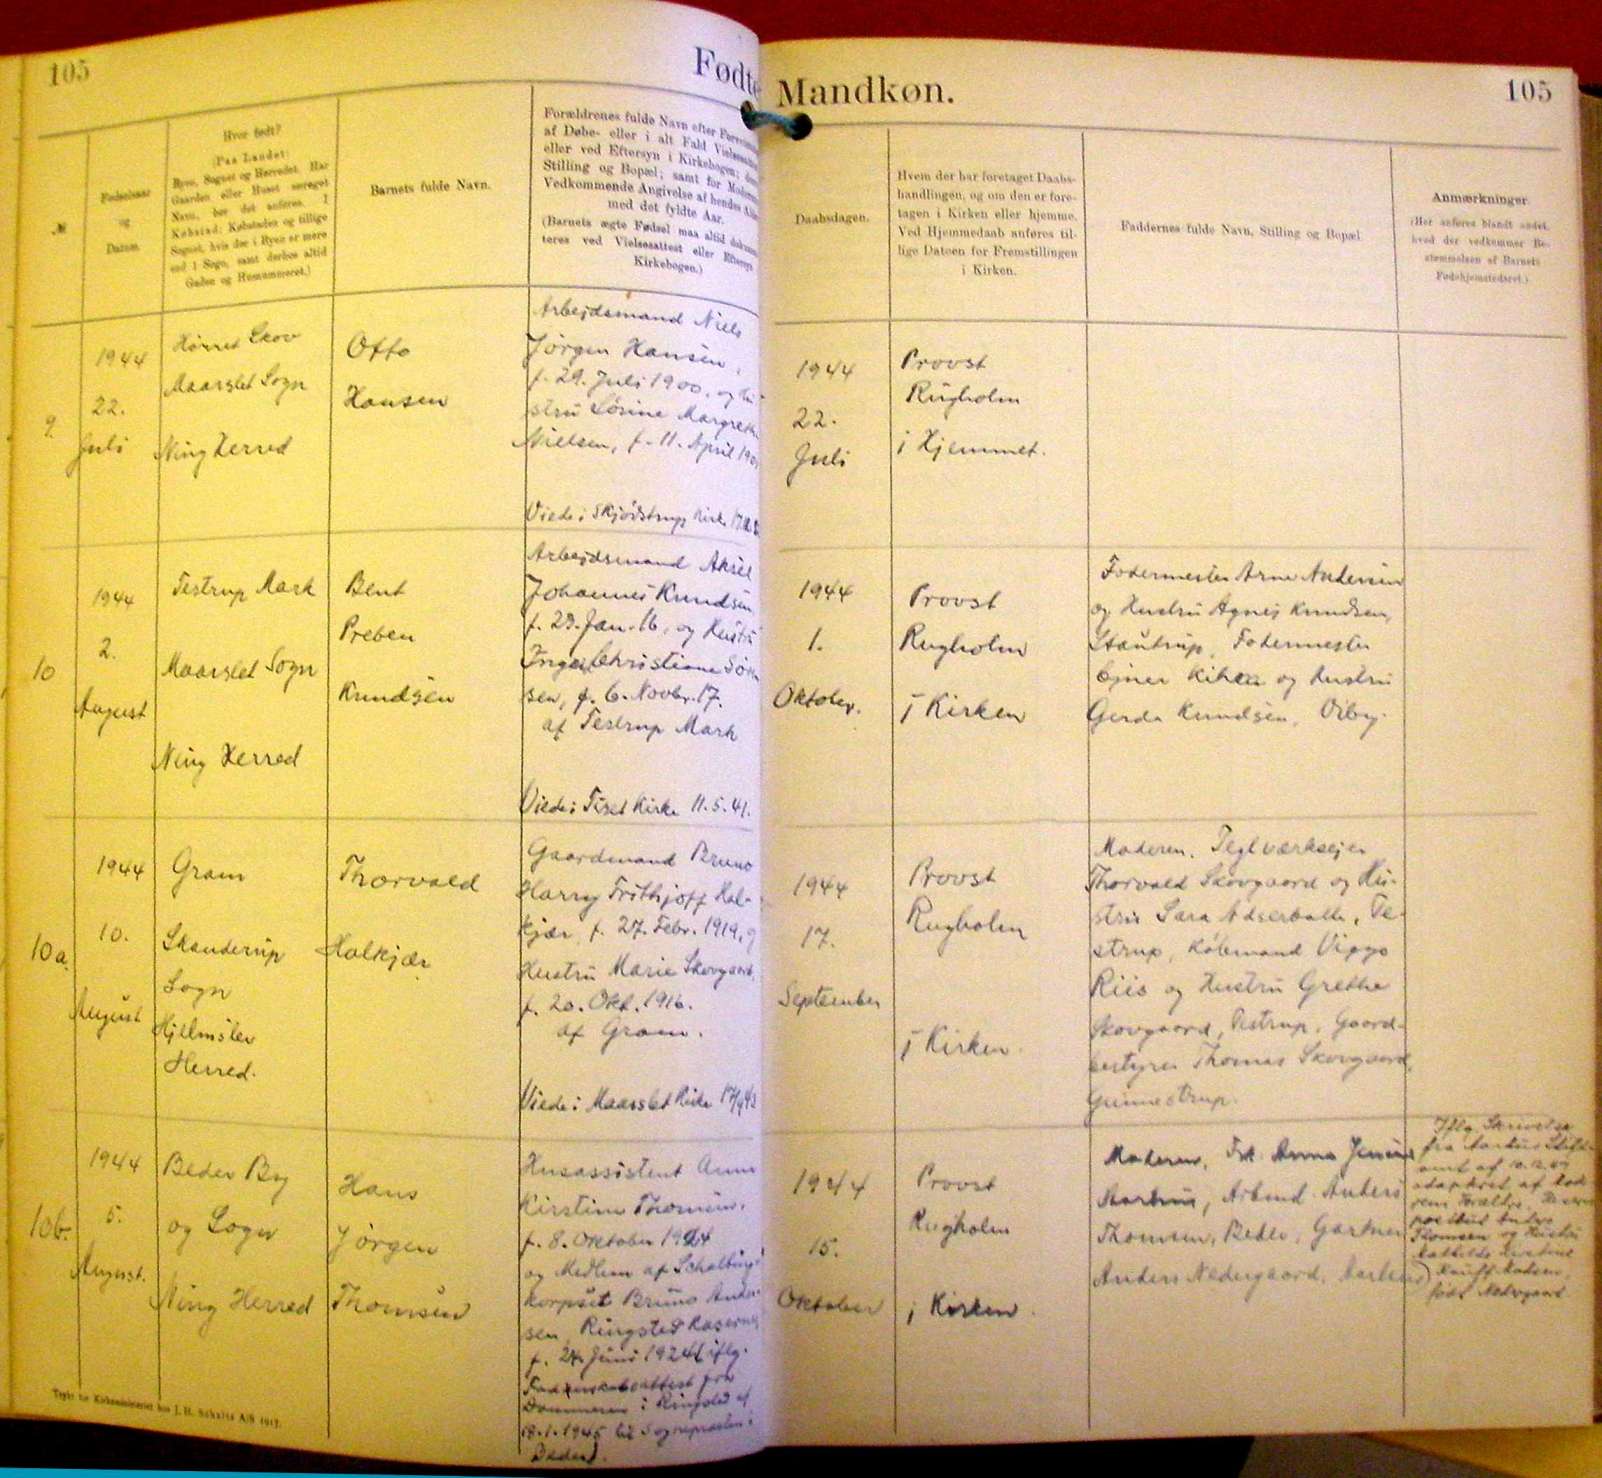 105
Fødte
Mandkøn.
105
№
Fødselsaar
og
Datum
Hvor født?
(Paa Landet:
Byen, Sognet og Herredet. Har
Gaarden eller Huset særeget
Navn, bør det anføres. I
Købstad: Købstadens og tillige
Sognet, hvis der i Byen er mere
end 1 Sogn, samt derhos altid
Gaden og Husnummeret.)
Barnets fulde Navn.
Forældrenes fulde Navn efter
af Døbe- eller i alt Fald
eller ved Eftersyn i Kirkebogen;
Stilling og Bopæl; samt for
Vedkommende Angivelse af hendes
med det fyldte Aar.
(Barnets ægte Fødsel maa altid
teres ved Vielsesattest eller Eftersyn
Kirkebogen.)
Daabsdagen.
Hvem der har foretaget Daabs-
handlingen, og om den er fore-
tagen i Kirken eller hjemme.
Ved Hjemmedaab anføres til-
lige Datoen for Fremstillingen
i Kirken.
Faddernes fulde Navn, Stilling og Bopæl
Anmærkninger
(Her anføres blandt andet,
hvad der vedkommer Be-
stemmelsen af Barnets
Fødehjemstedsret.)
9
1944
22.
Juli
Hørret Skov
Maarslet Sogn
Ning Herred
Otto
Hansen
Arbejdsmand Niels
Jørgen Hansen,
f. 29. Juli 1900, og Hu-
stru Sørine Margrethe
Nielsen, f. 11. April
Viede i Skjødstrup Kirke
1944
22.
Juli
Provst
Rugholm
i Hjemmet.
10
1944
2.
August
Testrup Mark
Maarslet Sogn
Ning Herred
Bent
Preben
Knudsen
Arbejdsmand Aksel
Johannes Knudsen
f. 29. Jan. 16, og Hustru
Inger Christiane
sen, f. 6. Novbr. 17.
af Testrup Mark
Viede i Tiset Kirke 11.5.41.
1944
1.
Oktober.
Provst
Rugholm
i Kirken
Fodermester Arne Andersen
og Hustru Agnes Knudsen,
Stautrup, Fodermester
Ejner og Hustru
Gerda Knudsen, Viby.
10a.
1944
10.
August
Gram
Skanderup
Sogn
Hjelmslev
Herred.
Thorvald
Holkjær
Gaardmand Bruno
Harry Frithjoff Hol-
kjær, f. 27. Febr. 1919, og
Hustru Marie Skovgaard,
f. 20. Okt. 1916.
af Gram.
Viede i Maarslet Kirke
1944
17.
September
Provst
Rugholm
i Kirken.
Moderen. Teglværksejer
Thorvald Skovgaard og Hu-
stru Sara Adserballe, Te-
strup, Købmand Viggo
Riis og Hustru Grethe
Skovgaard, Testrup. Gaard-
bestyrer Thomas Skovgaard,
Gunnestrup.
10b.
1944
5.
August.
Beder By
og Sogn
Ning Herred
Hans
Jørgen
Thomsen
Husassistent Anna
Kirstine Thomsen,
f. 8. Oktober 1924
og Medlem af Schalburg-
korpset Bruno Ander-
sen, Ringsted Kaserne,
f. 24. Juni 1924 iflg.
Faderskabsattest fra
Dommeren i Ringsted af
18.1.1945 til Sognepræsten i
Beder).
1944
15.
Oktober
Provst
Rugholm
i Kirken.
Moderen, Frk. Anna Jensen
Aarhus, Arbmd. Anders
Thomsen, Beder, Gartner
Anders Nedergaard, Aarhus
Iflg. Skrivelse
fra Aarhus Stift-
amt af 10.12.
adopteret af Mode-
rens Forældre,
Anders
Thomsen og Hustru
Mathilde Kirstine
Madsen,
født Nedergaard
Trykt for Kirkeministeriet hos J. H. Schultz A/S 1917.